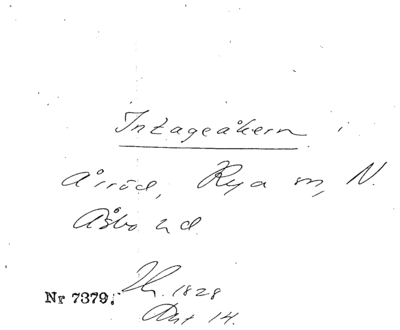 Intageåkern i
Årröd, Rya sn, N.
Åsbo hd
Nr 7379. Th. 1828
Akt 14.